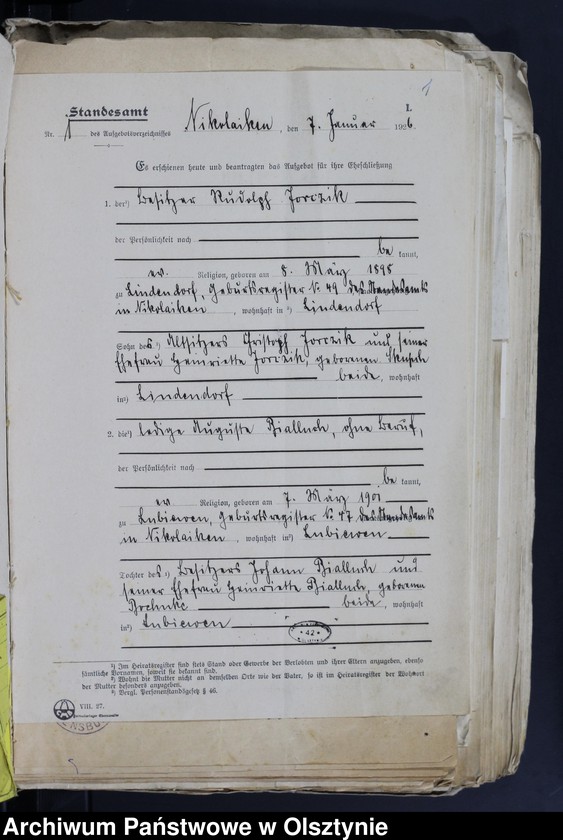 1
I.
Standesamt
Nr. 1 des Aufgebotsverzeichnisses Nikolaiken, den 7. Januar 1926.
Es erschienen heute und beantragten das Aufgebot für ihre Eheschließung
1. der¹) Besitzer Rudolph Jorczik
der Persönlichkeit nach
be kannt,
ev. Religion, geboren am 8. März 1898
zu Lindendorf, Geburtsregister N. 49 des Standesamts
in Nikolaiken, wohnhaft in ²) Lindendorf
Sohn des ¹) Altsitzers Christoph Jorczik und seiner
Ehefrau Henriette Jorczik, geborenen
beide, wohnhaft
in²) Lindendorf
2. die¹) ledige Auguste Biallnek, ohne Beruf,
der Persönlichkeit nach
be kannt,
ev Religion, geboren am 7. März 1901
zu Lubiewen, Geburtsregister N. 47 des Standesamts
in Nikolaiken, wohnhaft in²) Lubiewen
Tochter des ¹) Besitzers Johann Biallnek und
seiner Ehefrau Henriette Biallnek, geborenen
beide, wohnhaft
in²) Lubiewen
* 42 *
¹) Im Heiratsregister sind stets Stand oder Gewerbe der Verlobten und ihrer Eltern anzugeben, ebenso
sämtliche Vornamen, soweit sie bekannt sind.
²) Wohnt die Mutter nicht an demselben Orte wie der Vater, so ist im Heiratsregister der Wohnort
der Mutter besonders anzugeben.
³) Vergl. Personenstandsgesetz § 46.
VIII. 27.
Archiwum Państwowe w Olsztynie